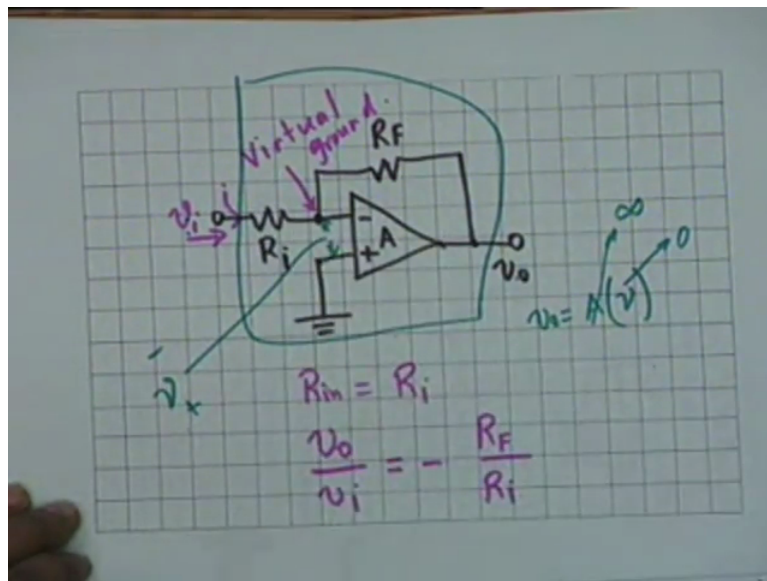 Virtual
ground.
RF
i
vi
Ri
-
+
A
vo
∞
0
vo = A(v)
vx
Rin = Ri
vo/vi = - RF/Ri